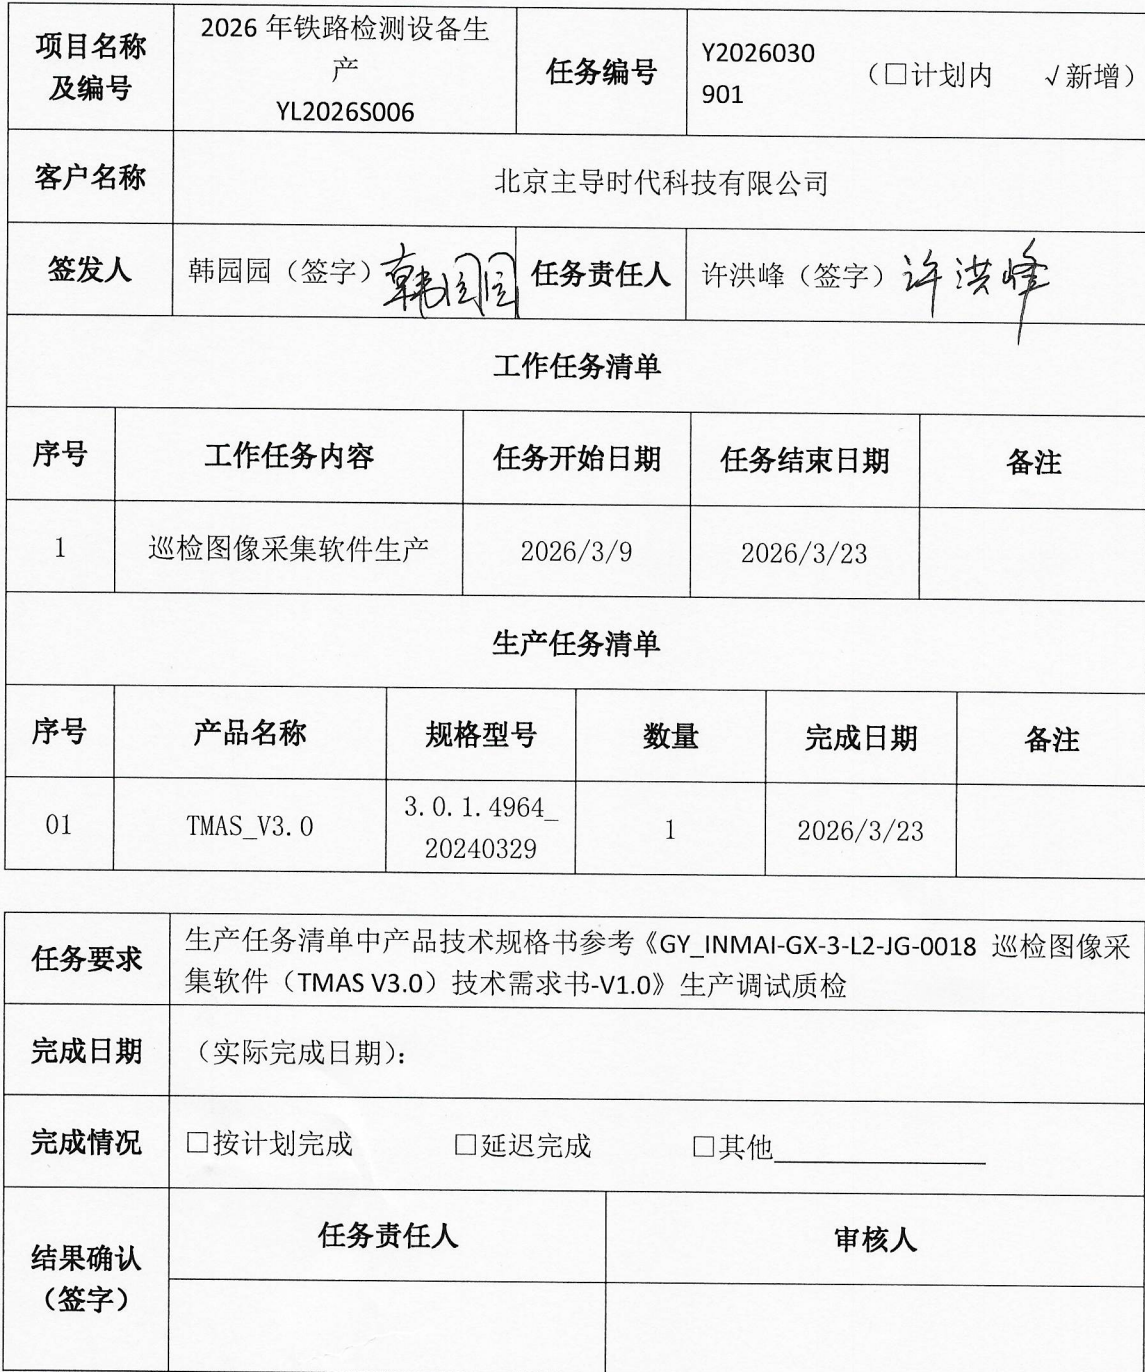 项目名称
及编号
2026 年铁路检测设备生
产
YL2026S006
任务编号
Y2026030
901
（□计划内 √新增）
客户名称
北京主导时代科技有限公司
签发人
韩园园（签字）韩园园
任务责任人
许洪峰（签字）许洪峰
工作任务清单
序号 工作任务内容 任务开始日期 任务结束日期 备注
1 巡检图像采集软件生产 2026/3/9 2026/3/23
生产任务清单
序号 产品名称 规格型号 数量 完成日期 备注
01 TMAS_V3.0
3.0.1.4964_
20240329
1 2026/3/23
任务要求
生产任务清单中产品技术规格书参考《GY_INMAI-GX-3-L2-JG-0018 巡检图像采
集软件（TMAS V3.0）技术需求书-V1.0》生产调试质检
完成日期
（实际完成日期）：
完成情况
□按计划完成 □延迟完成 □其他
结果确认
（签字）
任务责任人 审核人